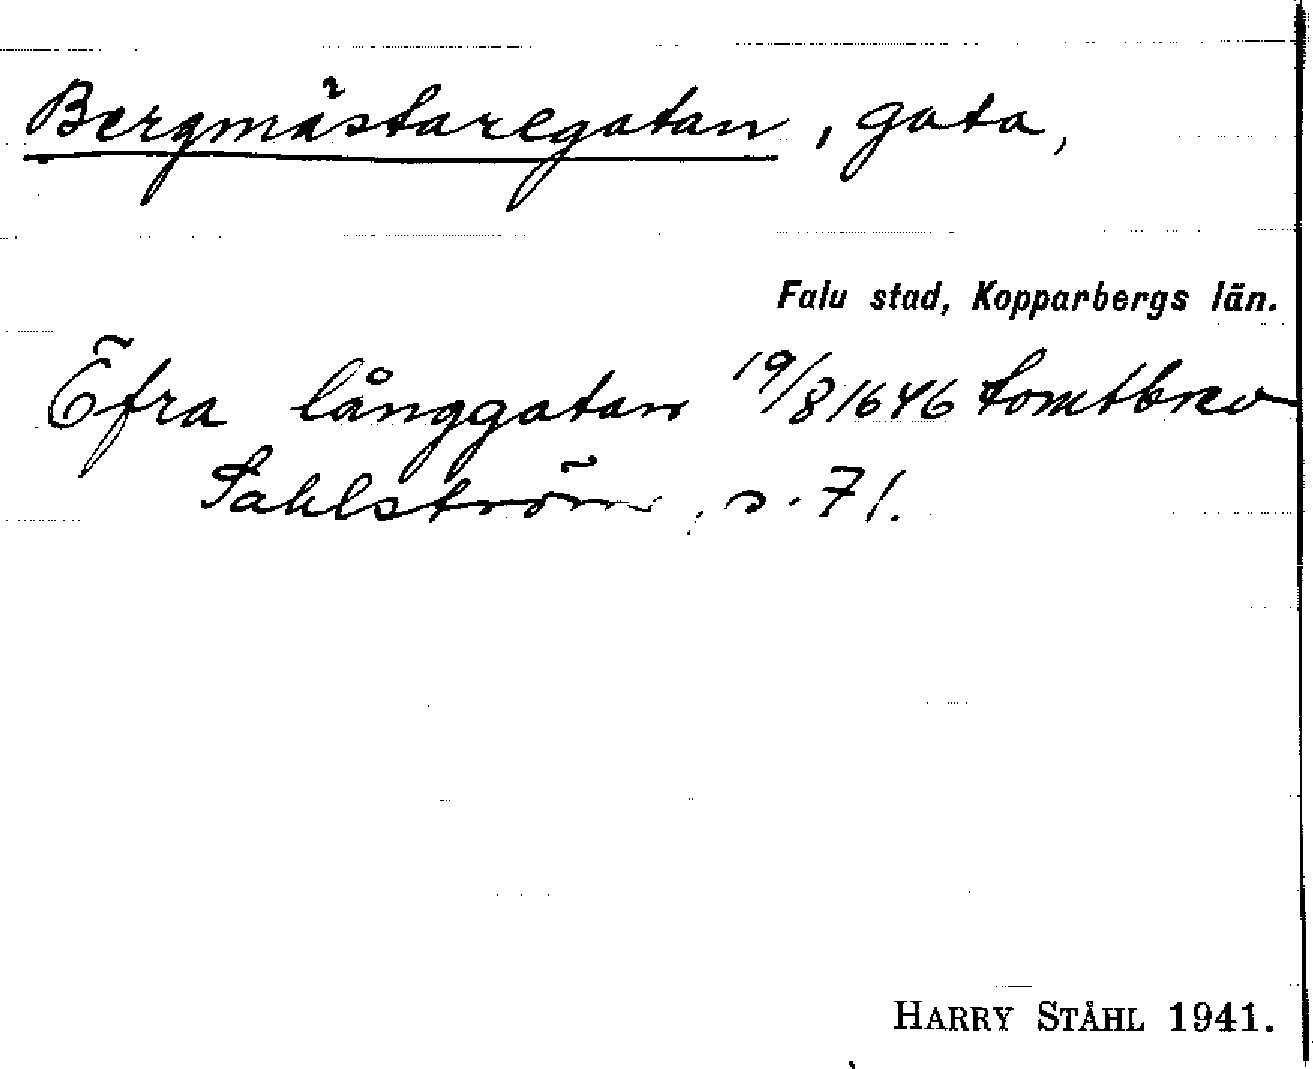 Bergmästaregatan, gata,
Falu stad, Kopparbergs län.
Öfra långgatan 19/8 1646 tomtbrev
Sahlström, s. 71.
HARRY STÅHL 1941.